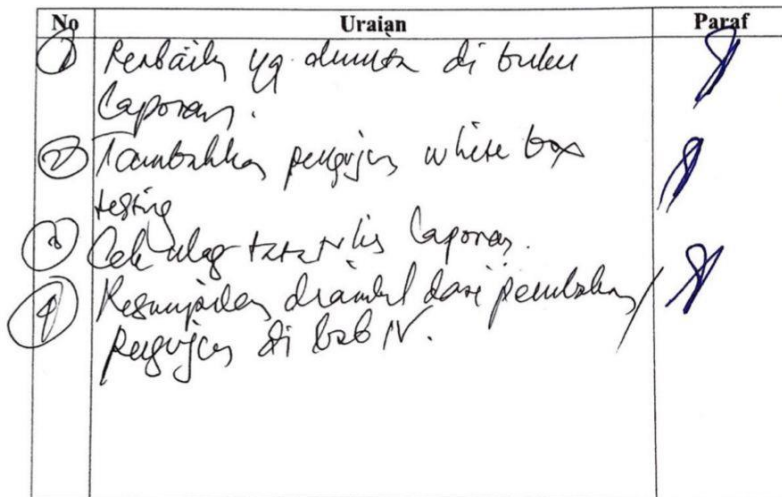 No Uraian Paraf
1 Perbaiki yg diminta di buku
laporan.
2 Tambahkan pengujian white box
testing
3 Cek ulag tata tulis laporan.
4 Kesimpulan diambil dari pembahasan/
pengujian di bab IV.